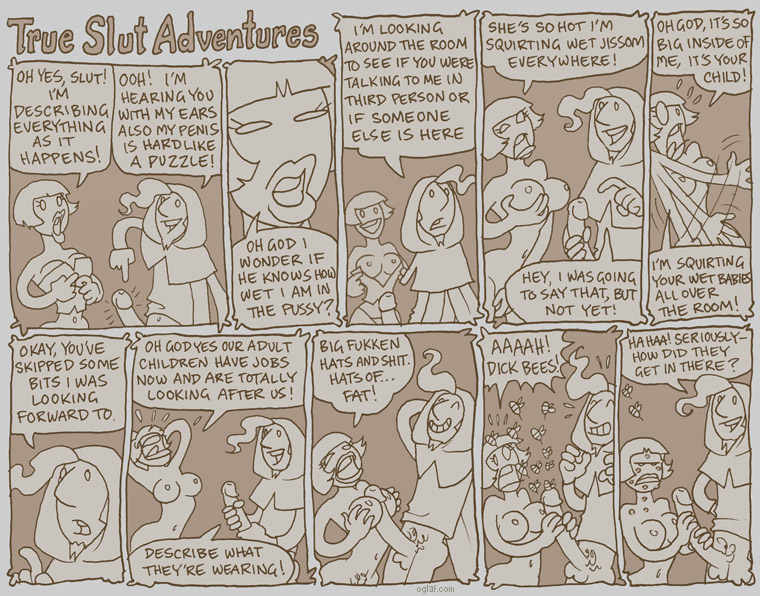 True Slut Adventures
OH YES, SLUT!
I'M
DESCRIBING
EVERYTHING
AS IT
HAPPENS!
OOH! I'M
HEARING YOU
WITH MY EARS
ALSO MY PENIS
IS HARD LIKE
A PUZZLE!
OH GOD I
WONDER IF
HE KNOWS HOW
WET I AM IN
THE PUSSY?
I'M LOOKING
AROUND THE ROOM
TO SEE IF YOU WERE
TALKING TO ME IN
THIRD PERSON OR
IF SOMEONE
ELSE IS HERE
SHE'S SO HOT I'M
SQUIRTING WET JISSOM
EVERYWHERE!
HEY, I WAS GOING
TO SAY THAT, BUT
NOT YET!
OH GOD, IT'S SO
BIG INSIDE OF
ME, IT'S YOUR
CHILD!
I'M SQUIRTING
YOUR WET BABIES
ALL OVER
THE ROOM!
OKAY, YOU'VE
SKIPPED SOME
BITS I WAS
LOOKING
FORWARD TO.
OH GOD YES OUR ADULT
CHILDREN HAVE JOBS
NOW AND ARE TOTALLY
LOOKING AFTER US!
DESCRIBE WHAT
THEY'RE WEARING!
BIG FUKKEN
HATS AND SHIT.
HATS OF...
FAT!
AAAAH!
DICK BEES!
HAHAA! SERIOUSLY-
HOW DID THEY
GET IN THERE?
oglaf.com